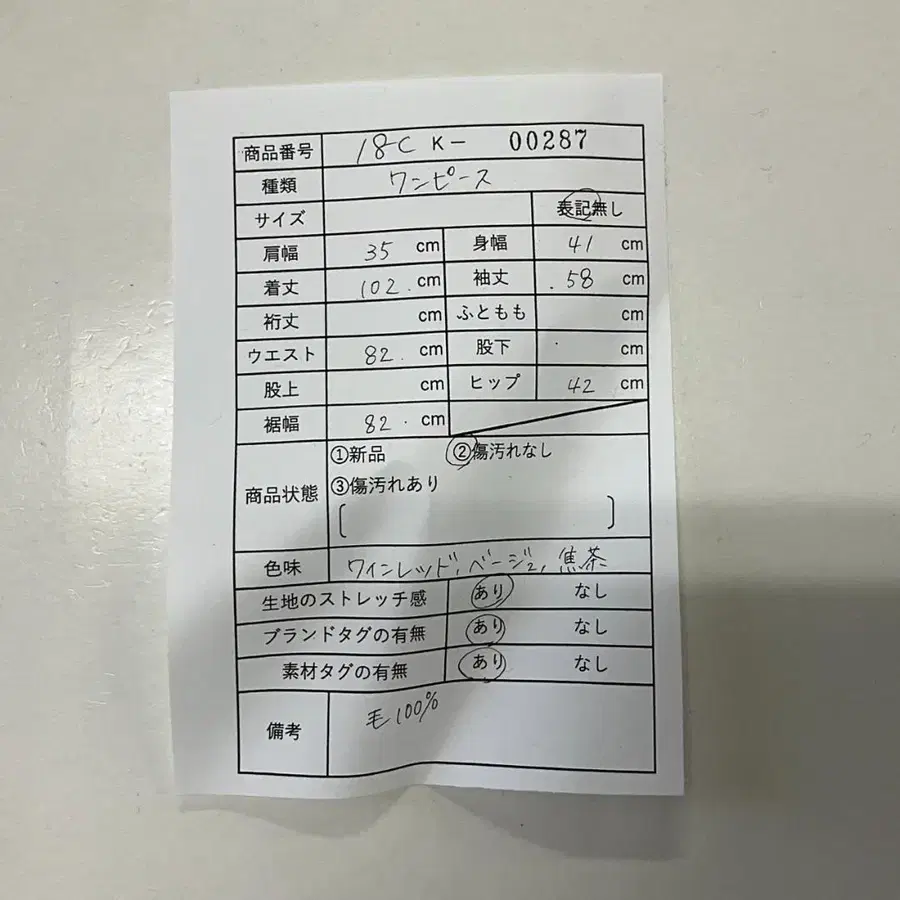 商品番号 18C K- 00287
種類 ワンピース
サイズ 表記無し
肩幅 35 cm 身幅 41 cm
着丈 102. cm 袖丈 .58 cm
裄丈 cm ふともも cm
ウエスト 82. cm 股下 cm
股上 cm ヒップ 42 cm
裾幅 82. cm
商品状態 ①新品 ②傷汚れなし
③傷汚れあり
[ ]
色味 ワインレッド、ベージュ、焦茶
生地のストレッチ感 あり なし
ブランドタグの有無 あり なし
素材タグの有無 あり なし
備考 毛100%